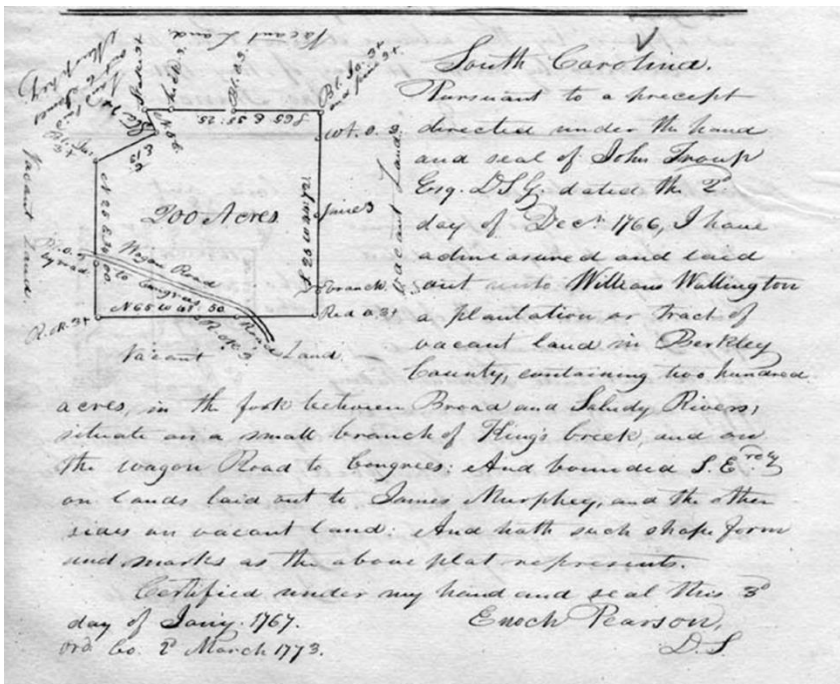 South Carolina.
Pursuant to a precept
directed under the hand
and seal of John Troup
Esq. D.S.G. dated the 2d
day of Decr. 1766, I have
admeasured and laid
out unto William Wallington
a plantation or tract of
vacant land in Berkley
County, containing two hundred
acres, in the fork between Broad and Saludy Rivers,
situate on a small branch of King's Creek, and on
the wagon Road to Congrees: And bounded S.E.
on lands laid out to James Murphey, and the other
sides on vacant land: And hath such shape form
and marks as the above plat represents.
Certified under my hand and seal this 3d
day of Jany. 1767.
Enoch Pearson,
D.S.
ord. Co. 2d March 1773.
Vacant Land
Bl. O. 3.
Bl. Ja. 3+
and pine 3+
W. O. 3
Vacant Land
pine 3
200 Acres
Wagon Road
to Congrees
Branch
Red O. 3+
N 65 W
R. O. 3+
Road
Vacant Land
Vacant Land.
James
Murphey